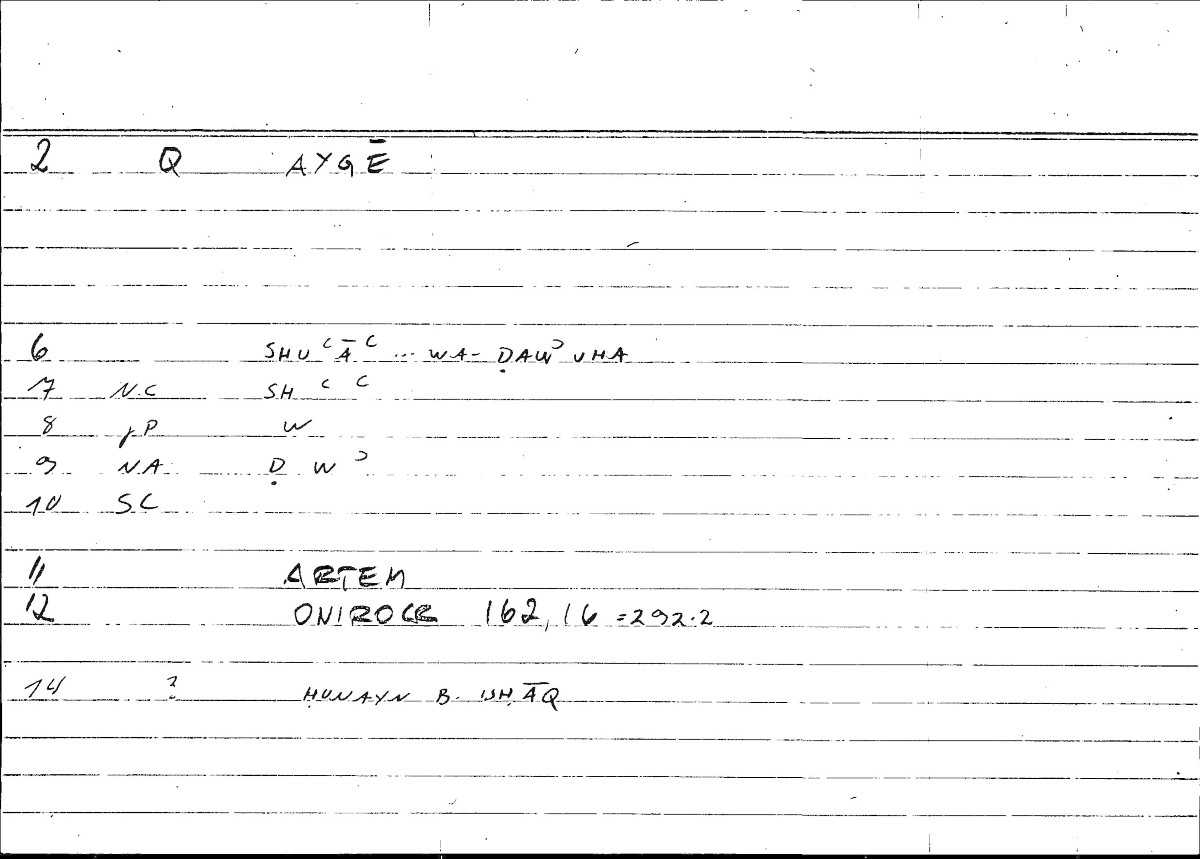 2 Q AYGĒ
6 SHUʿĀʿ ... WA- ḌAWʾUHA
7 N.C SH ʿ ʿ
8 ɟP W
9 NA Ḍ W ʾ
10 SC
11 ARTEM
12 ONIROCR 162,16 =292.2
14 ? ḤUNAYN B. ISḤĀQ